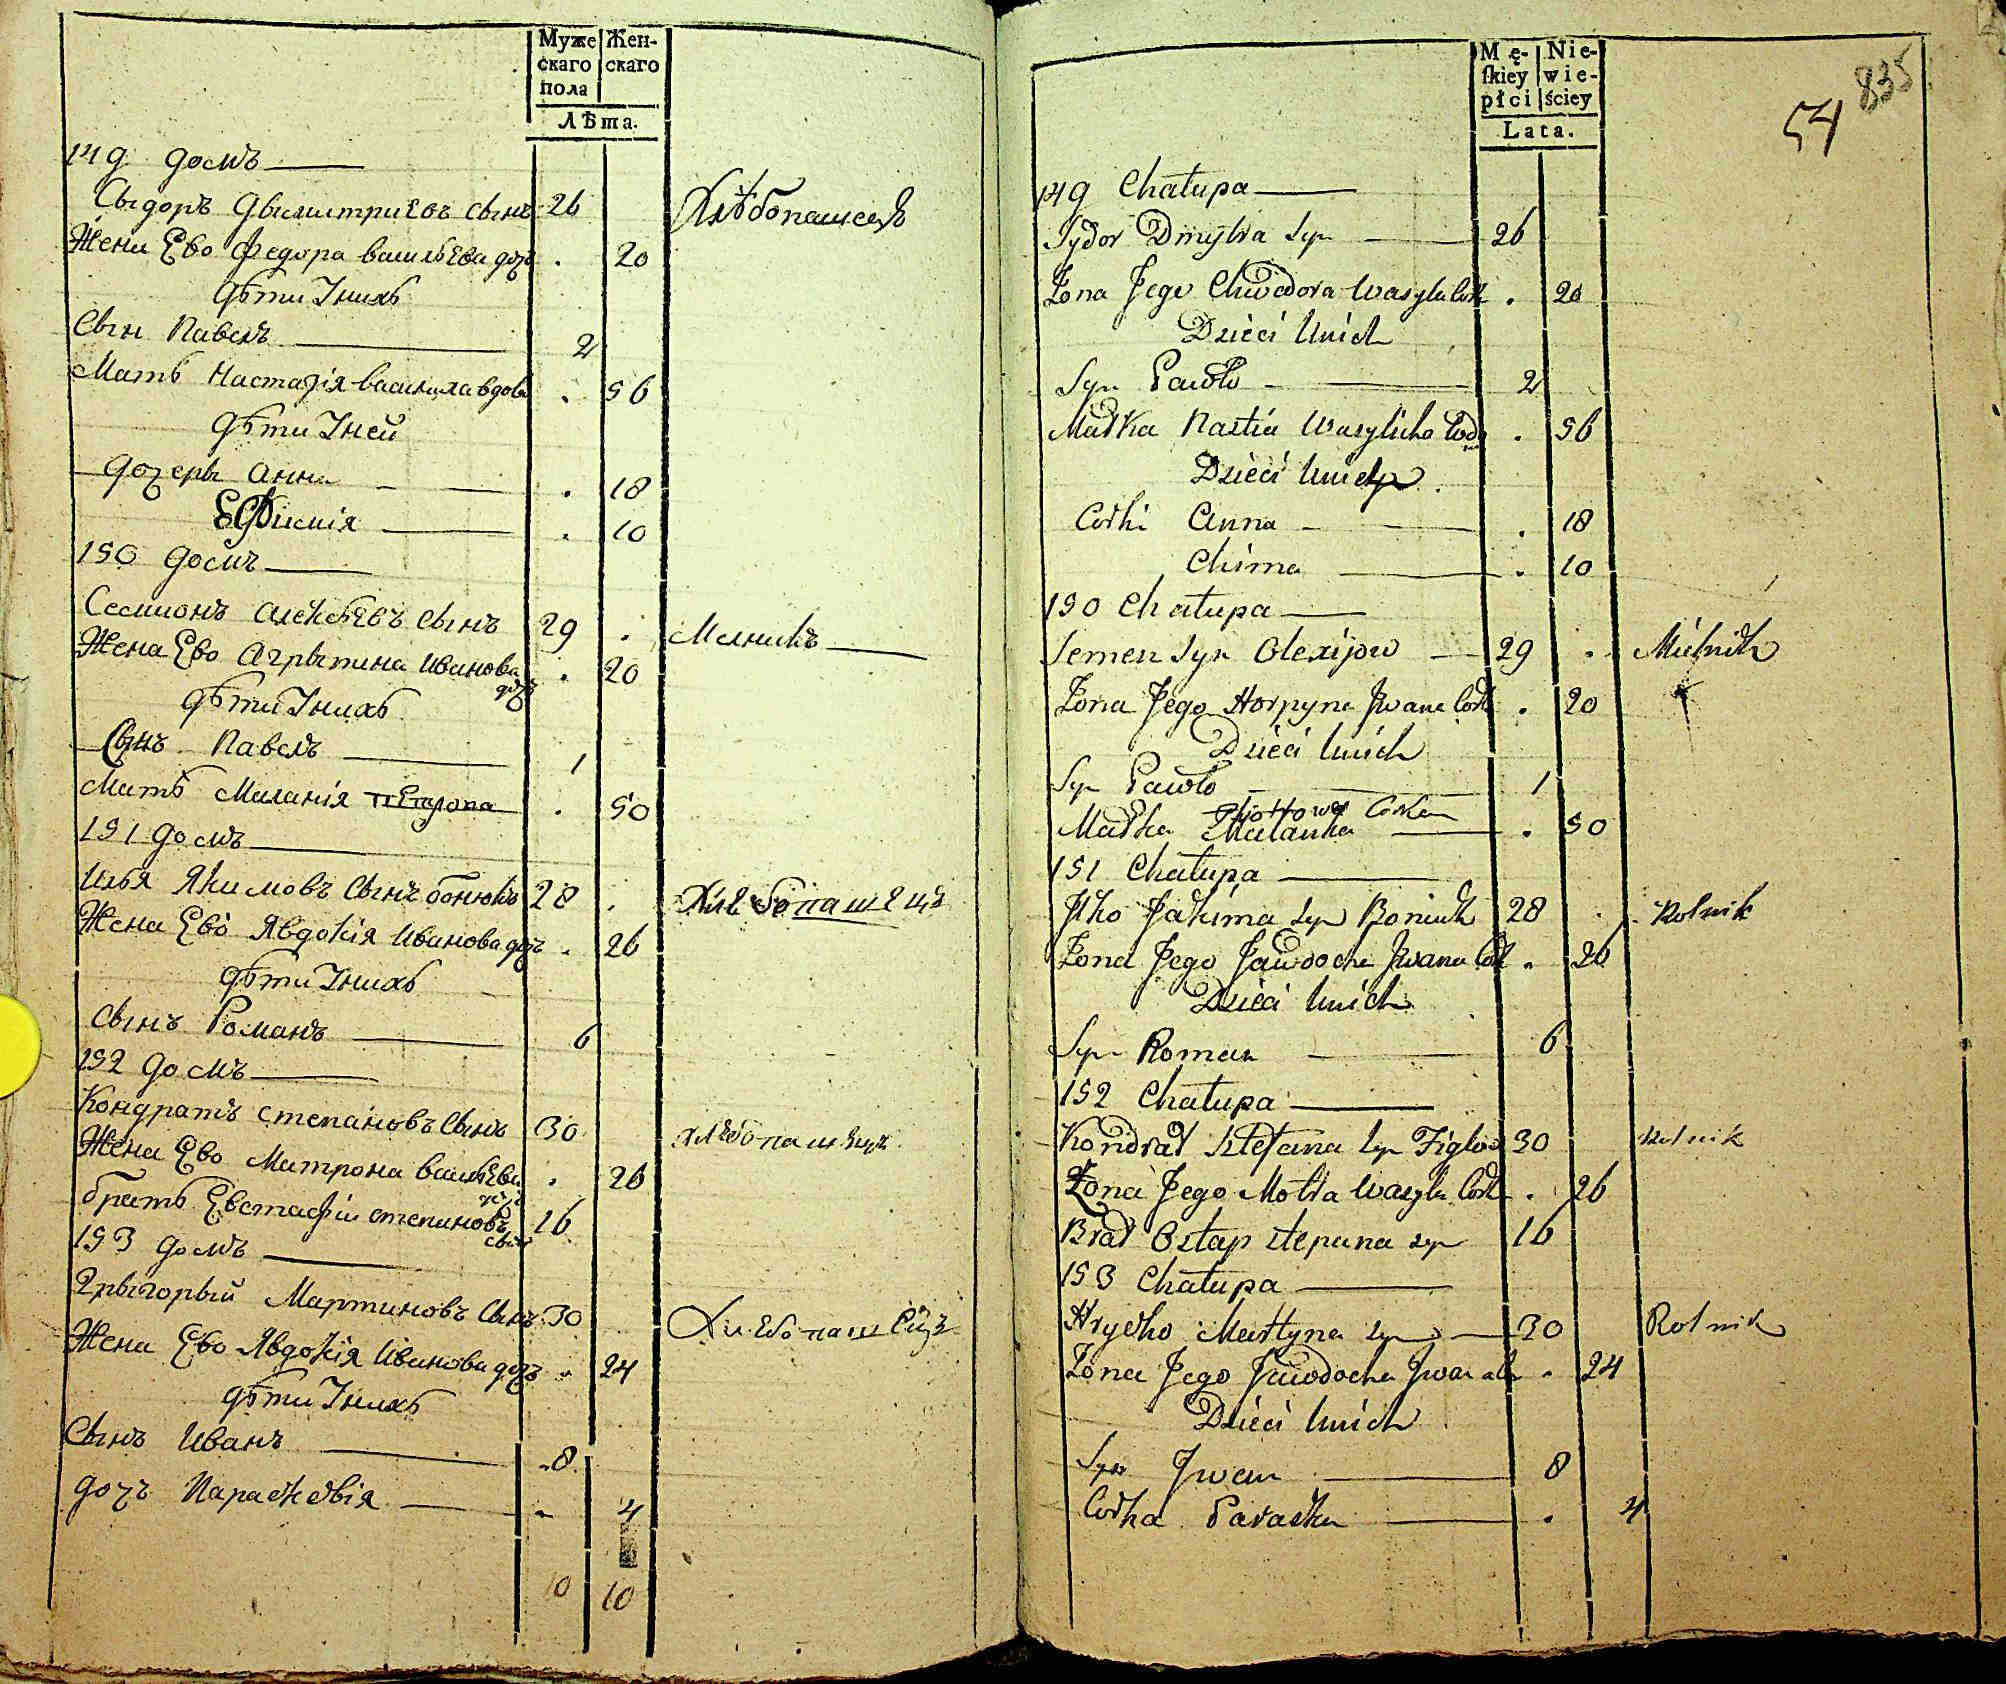 Муже Жен-
скаго скаго
пола
Лѣта.
149 домъ
Сыдоръ Дымитриевъ сынъ 26 Хлѣбопашецъ
Жена Ево Федора васильева дочь . 20
Дѣти Унихъ
Сын Павелъ 2
Мать Настазія василиха вдова . 56
Дѣти Уней
Дочеры Анна . 18
Ефимія . 10
150 домъ
Семионъ Алексѣевъ сынъ 29 . Мелникъ
Жена Ево Агрыпина Иванова дочь . 20
Дѣти Унихъ
Сынъ Павелъ 1
Мать Маланія . 50
151 домъ
Илья Якимовъ Сынъ бонюкъ 28 . Хлебопашецъ
Жена Ево Явдокія Иванова дочъ . 26
Дѣти Унихъ
Сынъ Романъ 6
152 домъ
Кондратъ степановъ Сынъ 30 хлѣбопашецъ
Жена Ево Матрона васильева дочъ . 26
братъ Евстафій степановъ сын 16
153 домъ
Грыгорый Мартиновъ Сынъ 30 Хлебопашецъ
Жена Ево Явдокія Иванова дочъ . 24
Дѣти Унихъ
Сынъ Иванъ 8
дочъ Параскевія 4
10 10
835
54
Mę- Nie-
ſkiey wie-
płci ściey
Lata.
149 Chałupa
Sydor Dmytra Syn 26
Żona Jego Chwedora Wasyla Cork . 20
Dzieci Unich
Syn Pawło 2
Matka Nastia Wasylicha Wdo . 56
Dzieci Uniey
Corki Anna . 18
Chima . 10
150 Chałupa
Semen Syn Olexijow 29 . Mielnik
Żona Jego Horpyna Jwana Cork . 20
Dzieci Unich
Syn Pawło 1
Corka
Matka Malanka . 50
151 Chałupa
Jlko Jakima Syn Boniuk 28 . Rolnik
Żona Jego Jawdocha Jwana Cork . 26
Dzieci Unich
Syn Roman 6
152 Chałupa
Kondrat Stefana Syn 30 Rolnik
Żona Jego Motra Wasyla Cork . 26
Brat Ostap Stepana syn 16
153 Chałupa
Hryćko Martyna syn 30 Rolnik
Żona Jego Jawdocha Jwana . 24
Dzieci Unich
Syn Jwan 8
Corka Paraska . 4